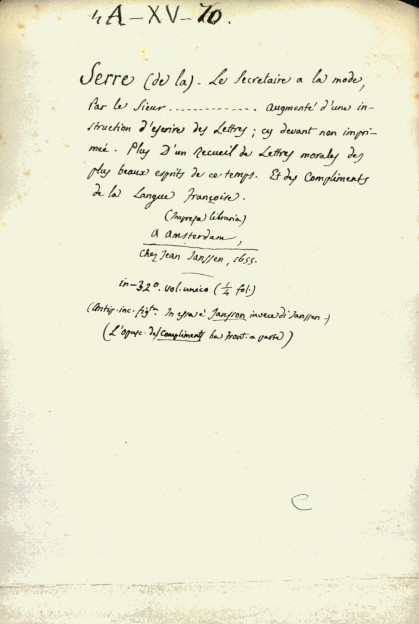 4A-XV-70.
Serre (de la). Le Secretaire a la mode,
Par le Sieur ............... augmenté d'une in-
struction d'escrire des Lettres; cy devant non impri-
meé. Plus D'un Recueil de Lettres morales des
plus beaux esprits de ce temps. Et des Compliments
de la Langue Françoise.
(Impresa libraria)
A Amsterdam,
chez Jean Janssen, 1655.
in-32º. vol. unico (1/4 fol.)
(Antip. inc. fig.to In essa è Jansson invece di Janssen.)
(L'opusc. des Compliments ha front. a parte)
C